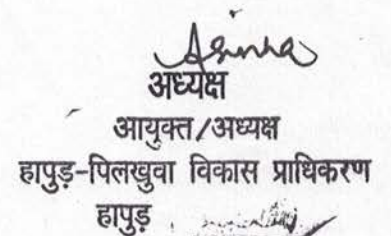 अध्यक्ष
आयुक्त/अध्यक्ष
हापुड़-पिलखुवा विकास प्राधिकरण
हापुड़